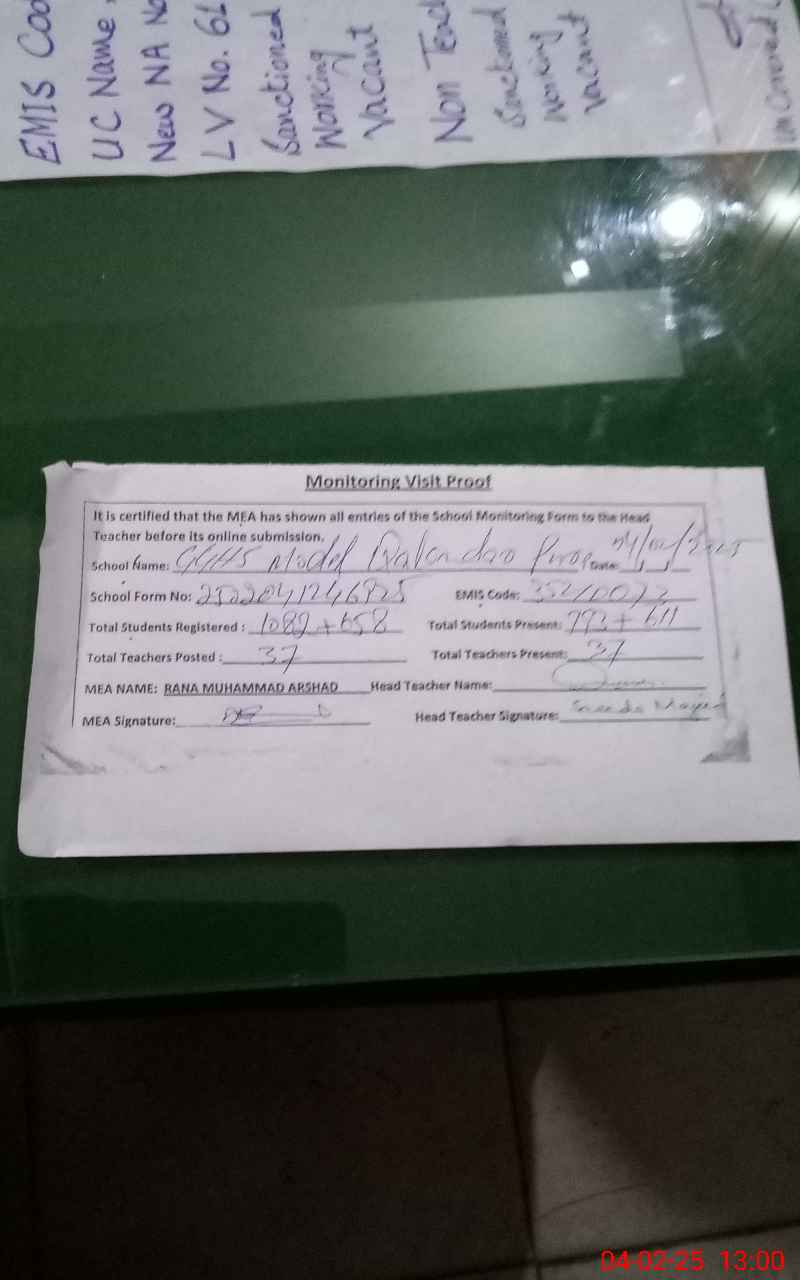 EMIS
UC Name
New NA No
LV No. 61
Sanctioned
Working
Vacant
Non
Sanctioned
Working
Vacant
Monitoring Visit Proof
It is certified that the MEA has shown all entries of the School Monitoring Form to the Head
Teacher before its online submission.
School Name: Model Date: 04/02/2025
School Form No: EMIS Code:
Total Students Registered : 1082+658 Total Students Present: 793+611
Total Teachers Posted : 37 Total Teachers Present: 37
MEA NAME: RANA MUHAMMAD ARSHAD Head Teacher Name:
MEA Signature: Head Teacher Signature:
04-02-25 13:00